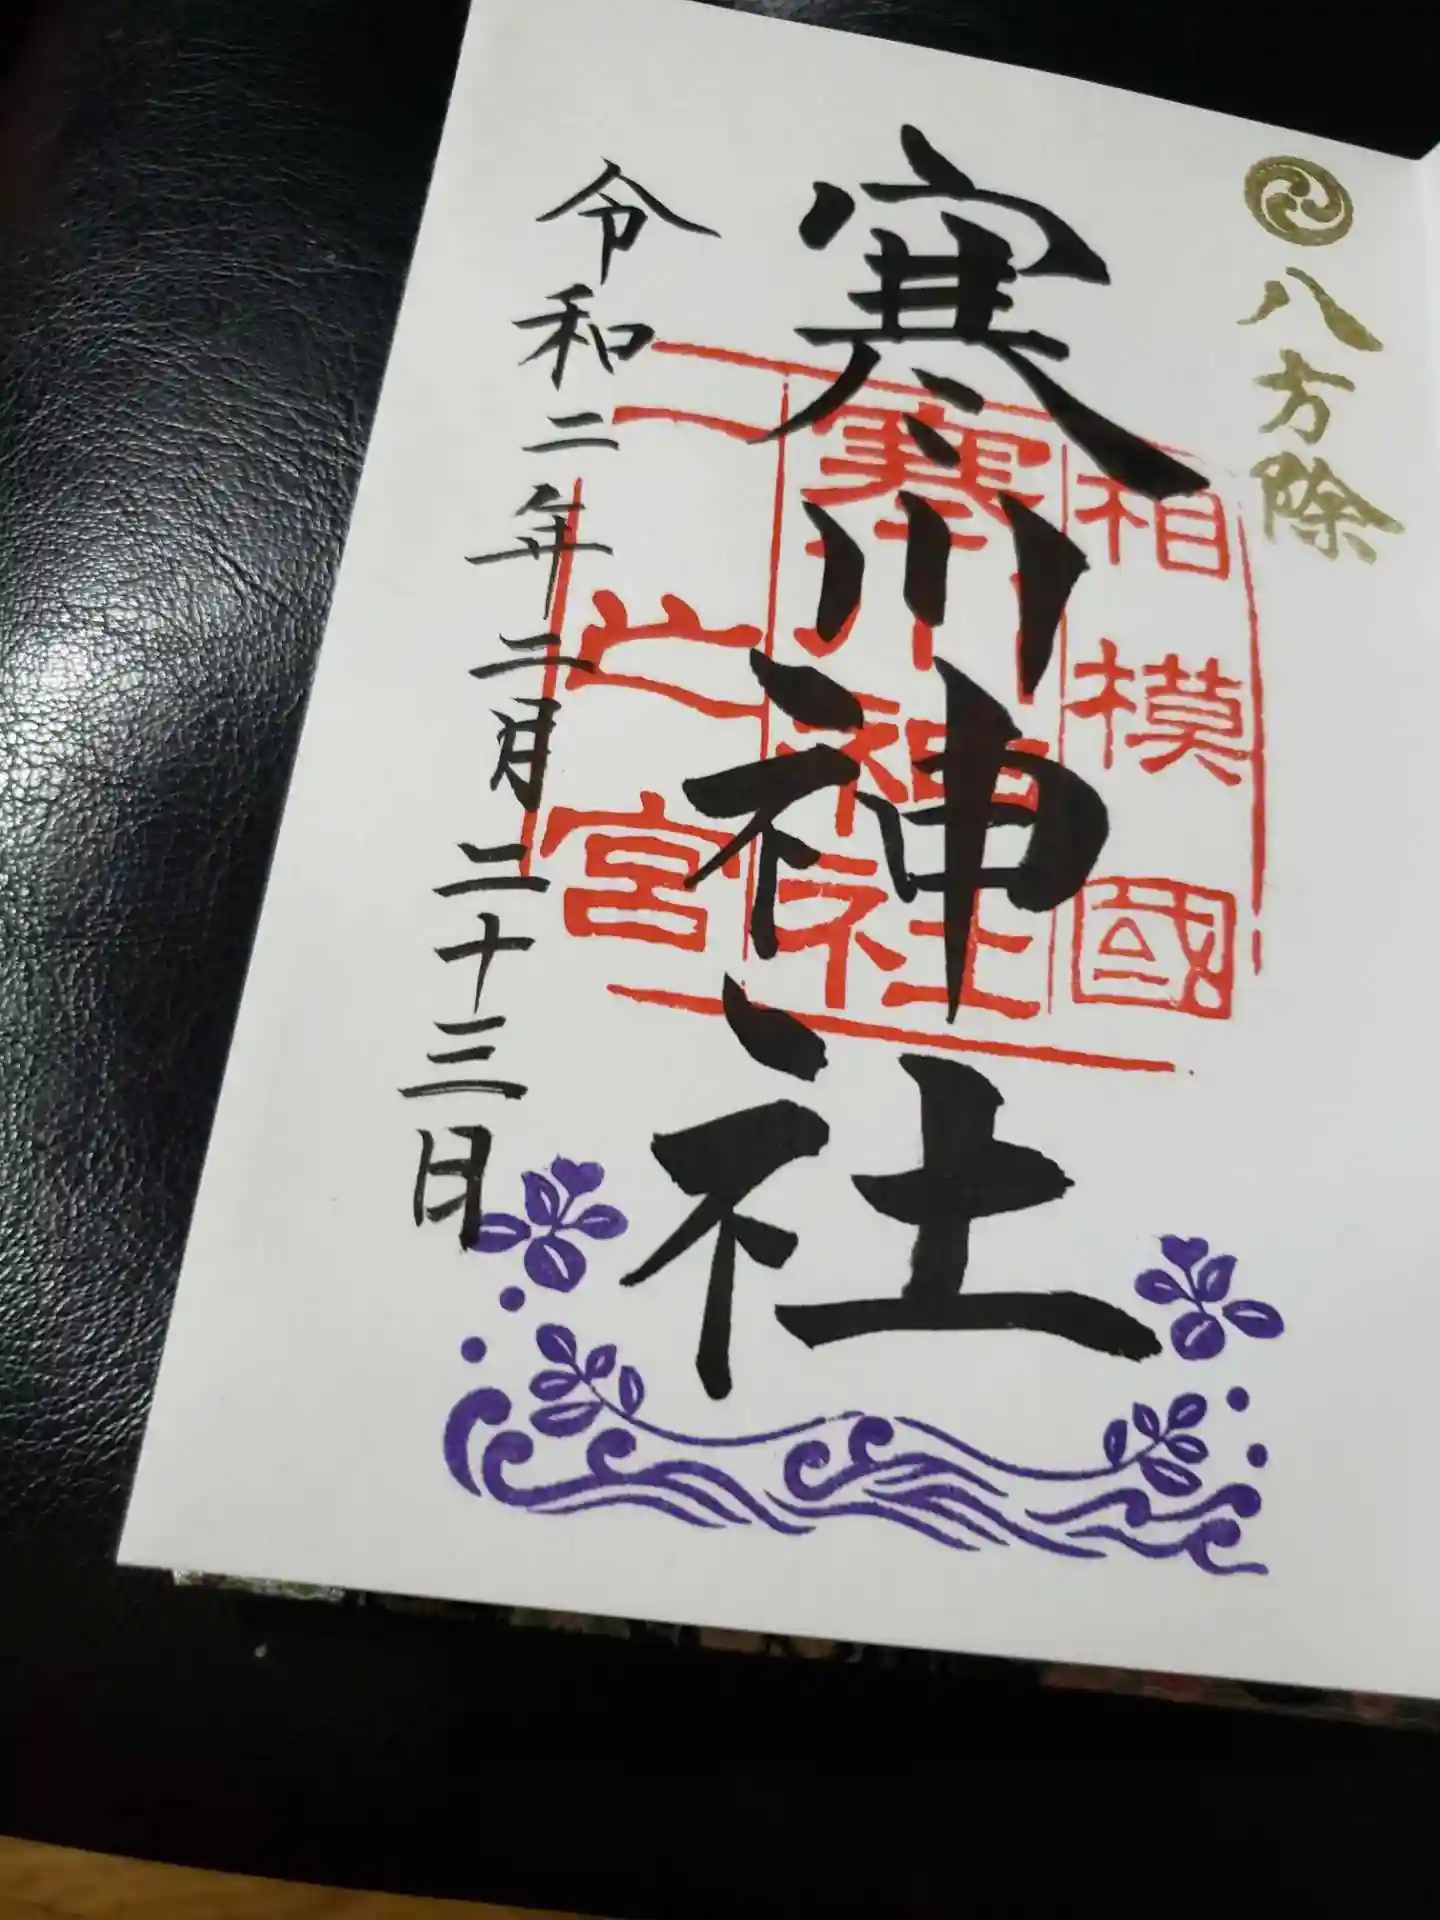 八方除
相模國
寒川神社
一之宮
寒川神社
令和二年二月二十三日